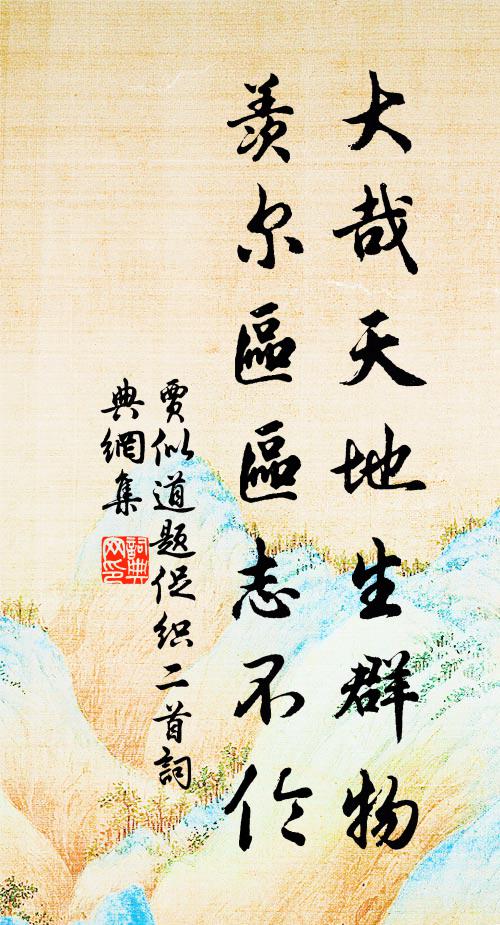 大哉天地生群物
羨尔區區志不伦
賈似道題促织二首詞
典網集
詞典
网印